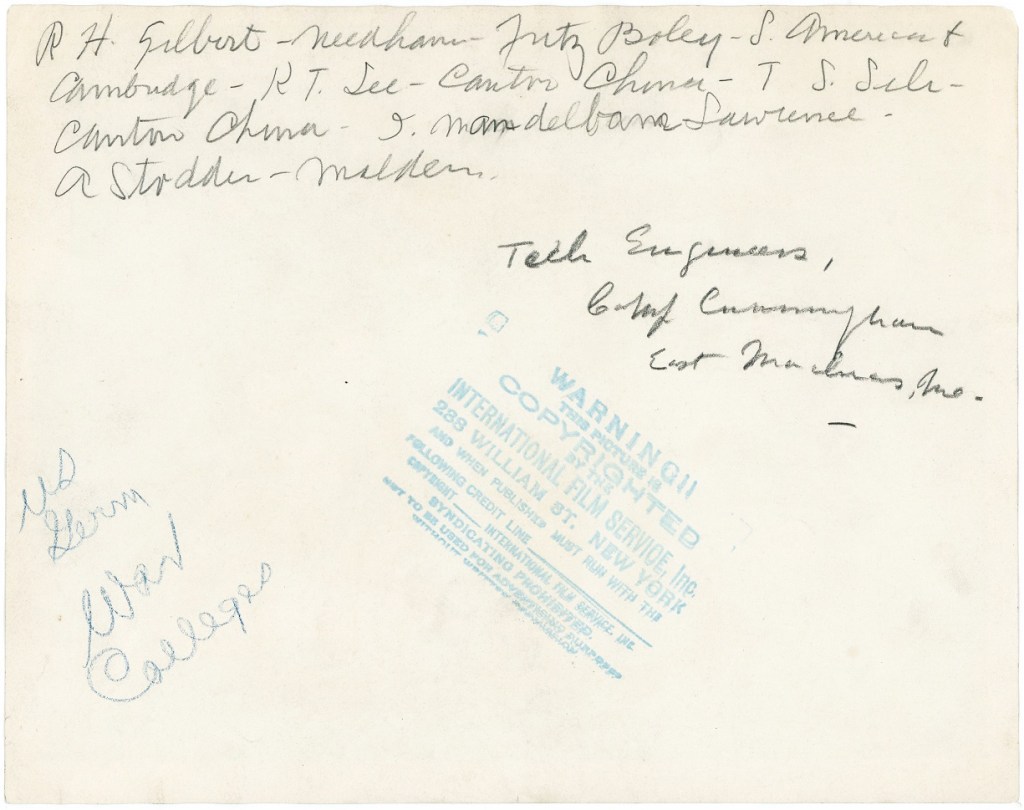 R H. Gilbert - Needham - Fritz Boley - S. America &
Cambridge - K T. See - Canton China - T S. Sek -
Canton China - I. Mandelbam Lawrence -
A Stodder - Malden.
Tech Engineers,
Camp Cunningham
East Machias, Me.
US
Germ
War
Colleges
WARNING!!
THIS PICTURE IS
COPYRIGHTED
BY THE
INTERNATIONAL FILM SERVICE, Inc.
288 WILLIAM ST. NEW YORK
AND WHEN PUBLISHED MUST RUN WITH THE
FOLLOWING CREDIT LINE
COPYRIGHT INTERNATIONAL FILM SERVICE, INC
SYNDICATING PROHIBITED.
NOT TO BE USED FOR ADVERTISING PURPOSES
WITHOUT WRITTEN PERMISSION